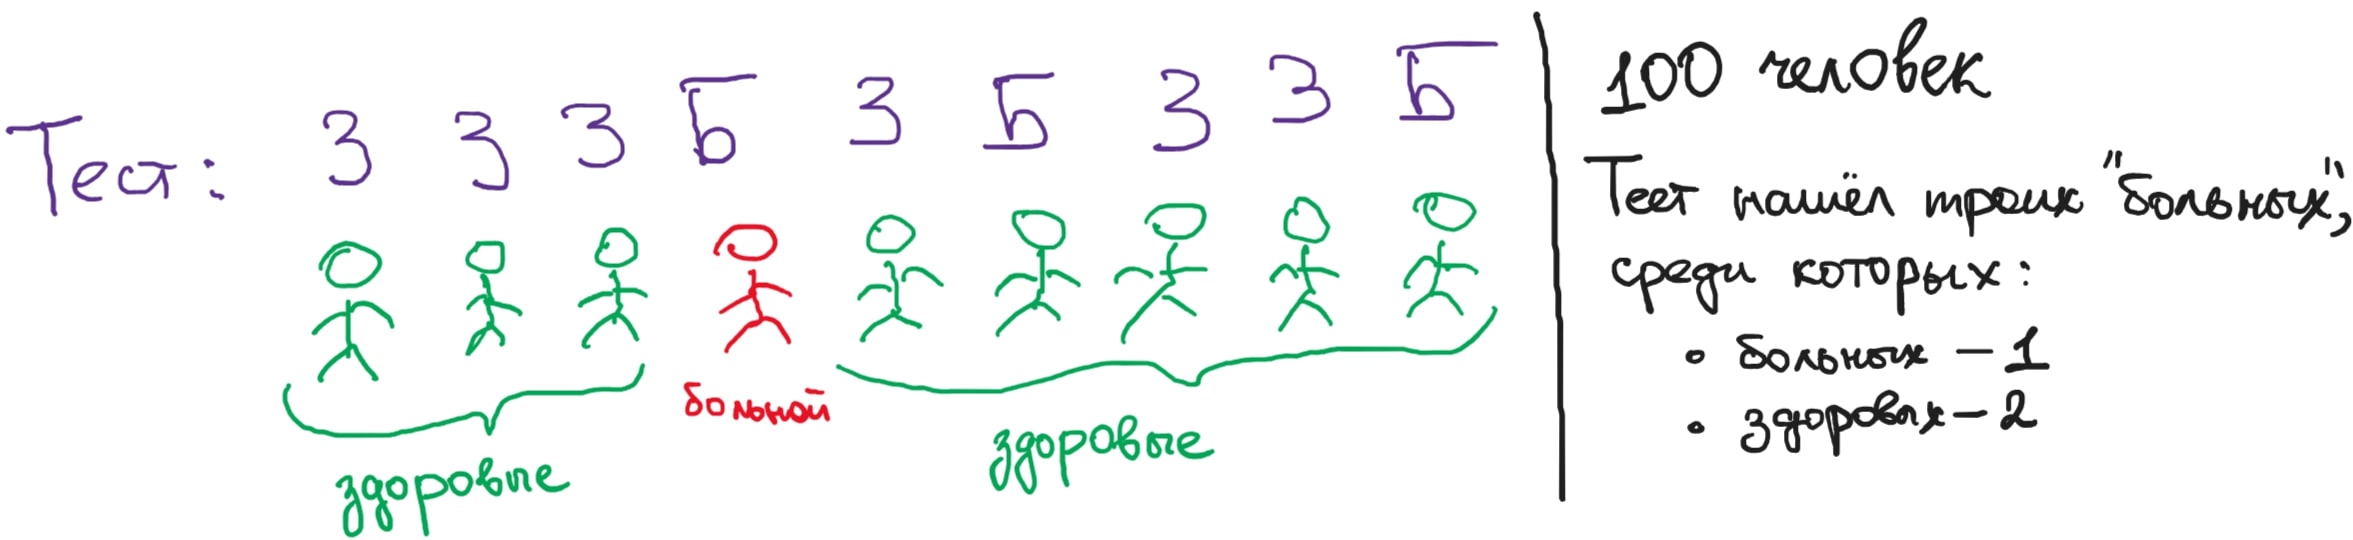 Тест: З З З Б З Б З З Б
больной
здоровые
здоровые
100 человек
Тест нашёл троих "больных",
среди которых:
• больных – 1
• здоровых – 2